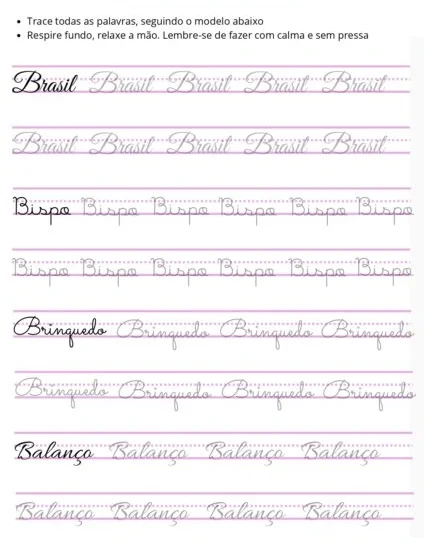 • Trace todas as palavras, seguindo o modelo abaixo
• Respire fundo, relaxe a mão. Lembre-se de fazer com calma e sem pressa
Brasil Brasil Brasil Brasil Brasil
Brasil Brasil Brasil Brasil Brasil
Bispo Bispo Bispo Bispo Bispo Bispo
Bispo Bispo Bispo Bispo Bispo Bispo
Brinquedo Brinquedo Brinquedo Brinquedo
Brinquedo Brinquedo Brinquedo Brinquedo
Balanço Balanço Balanço Balanço
Balanço Balanço Balanço Balanço